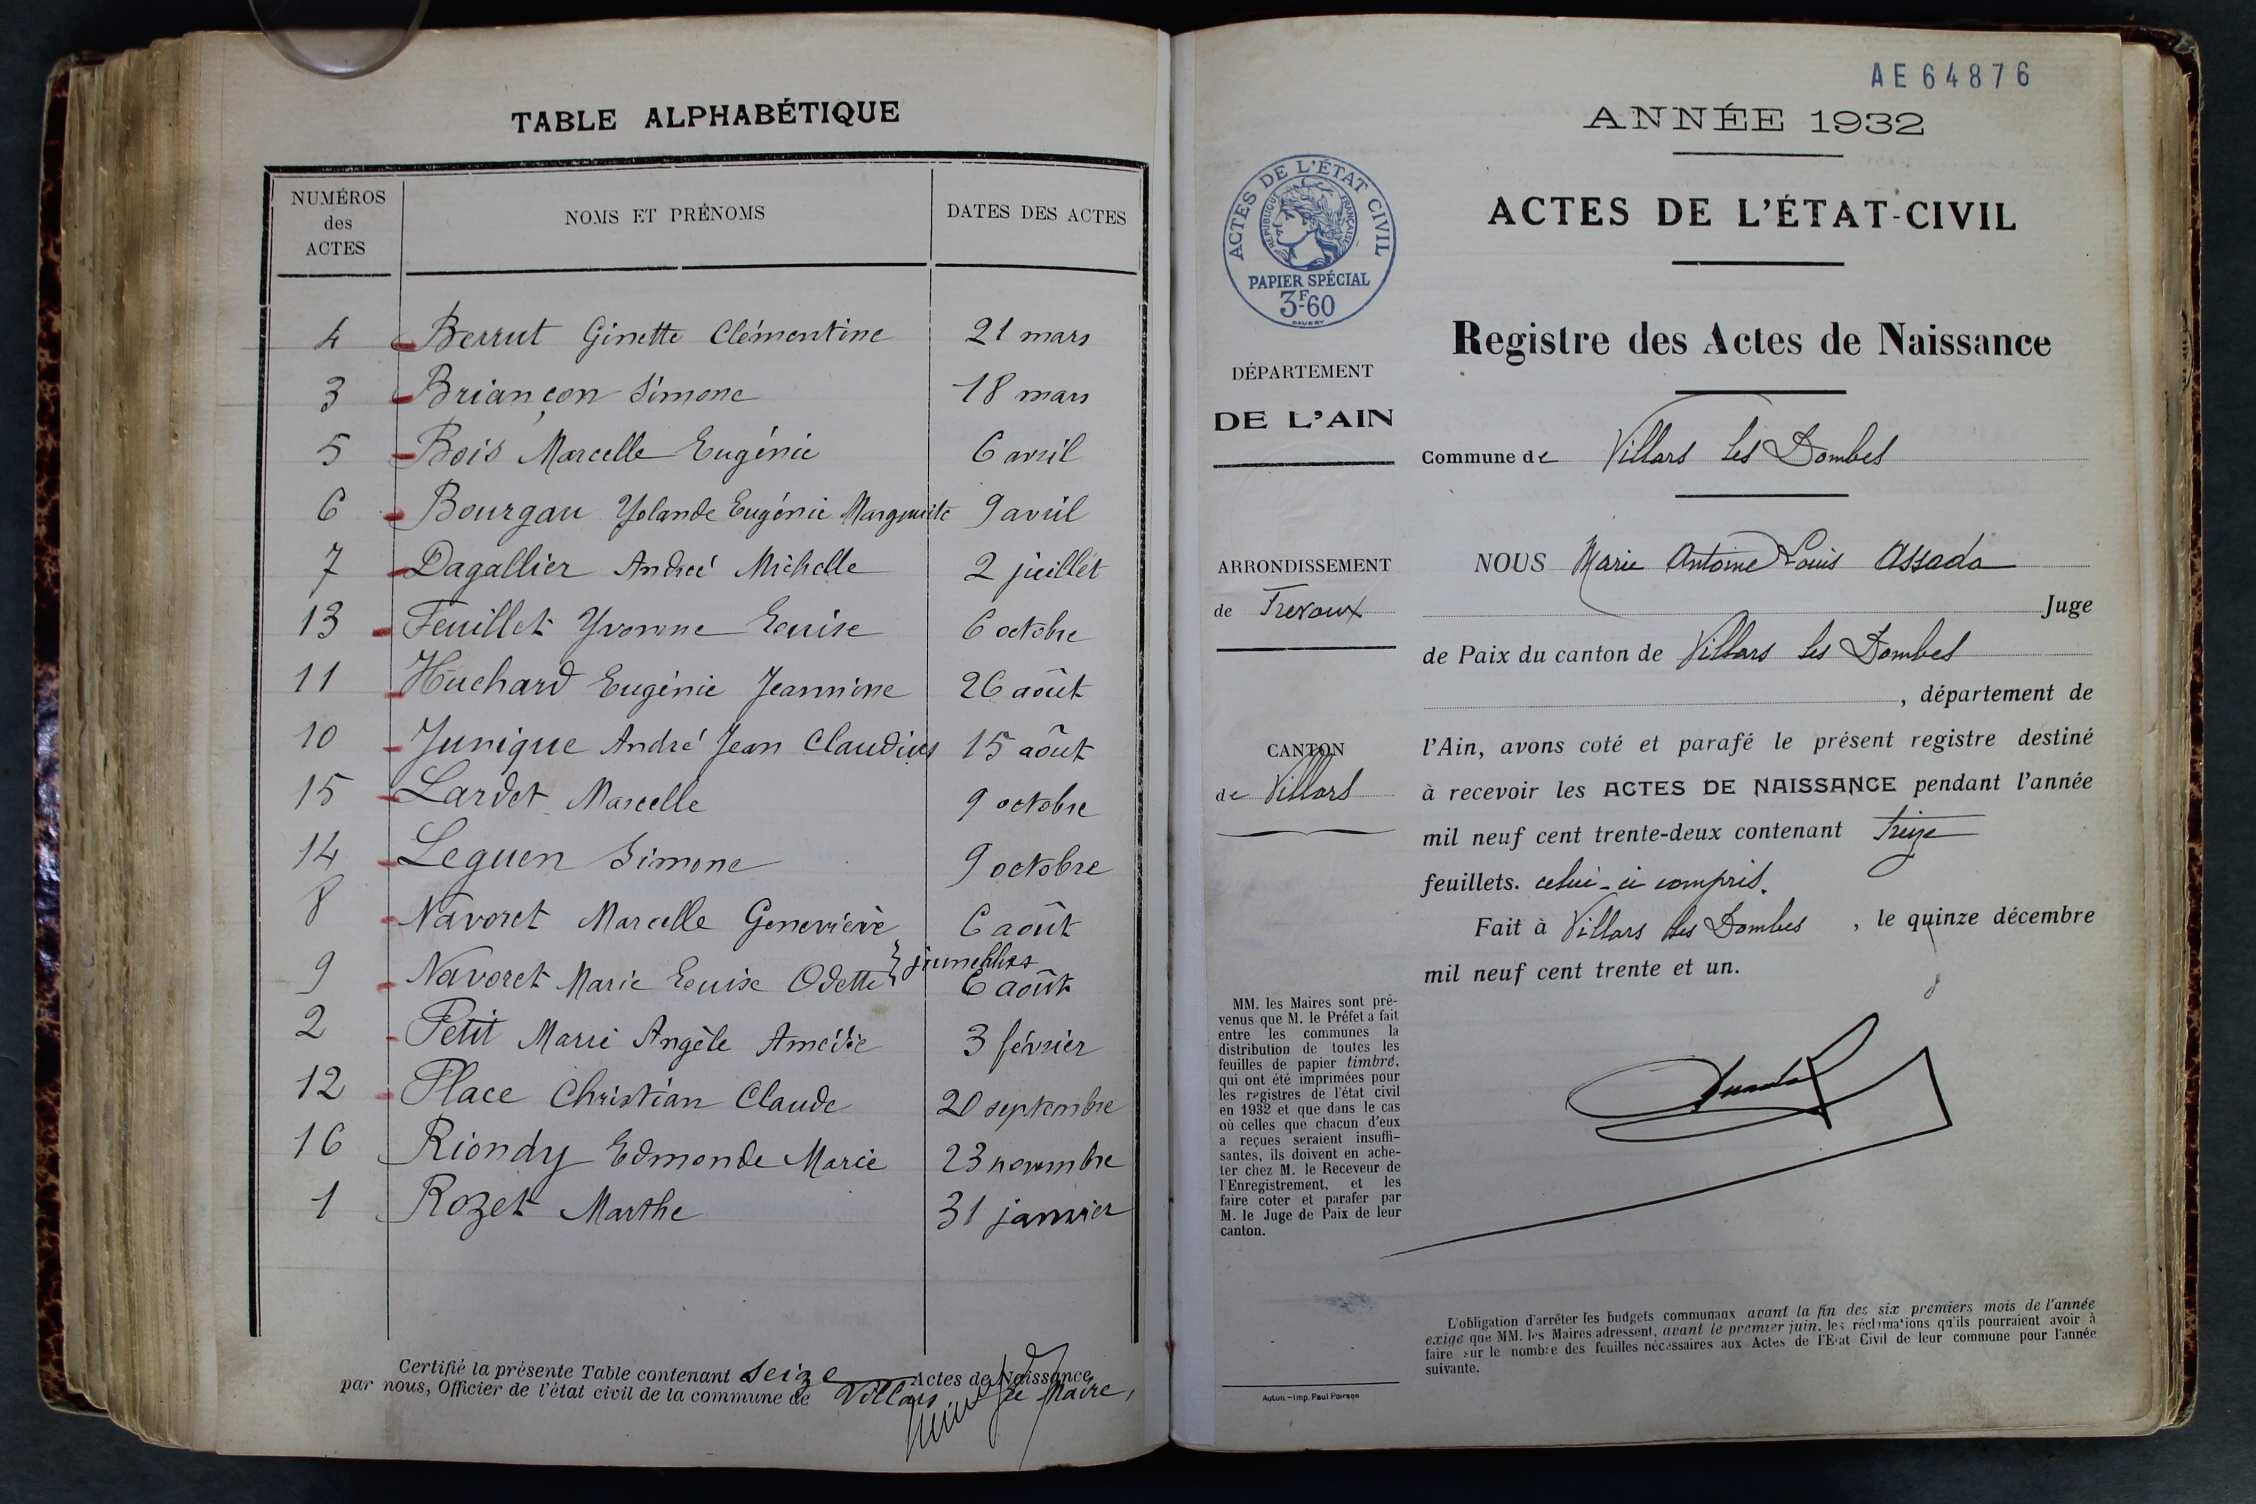 TABLE ALPHABÉTIQUE
NUMÉROS des ACTES NOMS ET PRÉNOMS DATES DES ACTES
4 Berrut Ginette Clémentine 21 mars
3 Briançon Simone 18 mars
5 Bois Marcelle Eugénie 6 avril
6 Bourgau Yolande Eugénie Marguerite 9 avril
7 Dagallier Andreé Michelle 2 juillet
13 Feuillet Yvonne Louise 6 octobre
11 Huchard Eugénie Jeannine 26 août
10 Junique André Jean Claudius 15 août
15 Lardet Marcelle 9 octobre
14 Leguen Simone 9 octobre
8 Navoret Marcelle Geneviève 6 août
jumelles
9 Navoret Marie Louise Odette 6 août
2 Petit Marie Angèle Amédée 3 février
12 Place Christian Claude 20 septembre
16 Riondy Edmonde Marie 23 novembre
1 Rozet Marthe 31 janvier
Certifié la présente Table contenant seize Actes de Naissance
par nous, Officier de l'état civil de la commune de Villars Le Maire,
AE64876
ANNÉE 1932
ACTES DE L'ÉTAT CIVIL
RÉPUBLIQUE FRANÇAISE
PAPIER SPÉCIAL
3F60
ACTES DE L'ÉTAT-CIVIL
Registre des Actes de Naissance
DÉPARTEMENT
DE L'AIN
Commune de Villars les Dombes
ARRONDISSEMENT
de Trevoux
CANTON
de Villars
NOUS Marie Antoine Louis Assada
Juge
de Paix du canton de Villars les Dombes
, département de
l'Ain, avons coté et parafé le présent registre destiné
à recevoir les ACTES DE NAISSANCE pendant l'année
mil neuf cent trente-deux contenant Treize
feuillets. celui-ci compris.
Fait à Villars les Dombes , le quinze décembre
mil neuf cent trente et un.
MM. les Maires sont pré-
venus que M. le Préfet a fait
entre les communes la
distribution de toutes les
feuilles de papier timbré,
qui ont été imprimées pour
les registres de l'état civil
en 1932 et que dans le cas
où celles que chacun d'eux
a reçues seraient insuffi-
santes, ils doivent en ache-
ter chez M. le Receveur de
l'Enregistrement, et les
faire coter et parafer par
M. le Juge de Paix de leur
canton.
L'obligation d'arrêter les budgets communaux avant la fin des six premiers mois de l'année
exige que MM. les Maires adressent, avant le premier juin, les réclamations qu'ils pourraient avoir à
faire sur le nombre des feuilles nécessaires aux Actes de l'Etat Civil de leur commune pour l'année
suivante.
Autun.-Imp. Paul Poirson